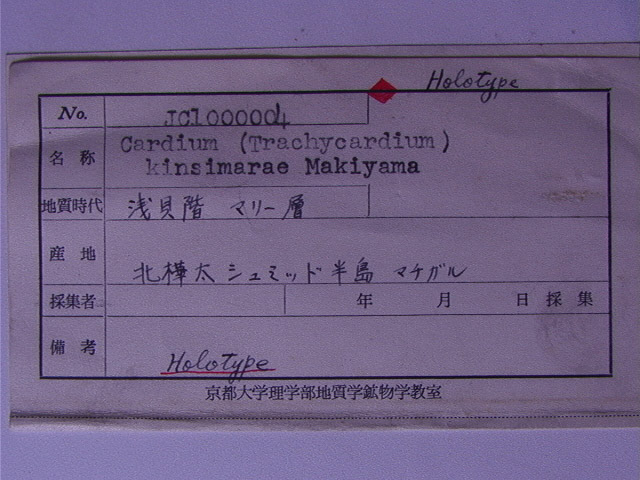 Holotype
No. JC1000004
名称 Cardium (Trachycardium)
kinsimarae Makiyama
地質時代 浅貝階 マリー層
産地 北樺太シュミッド半島 マチガル
採集者 年 月 日 採集
備考 Holotype
京都大学理学部地質学鉱物学教室